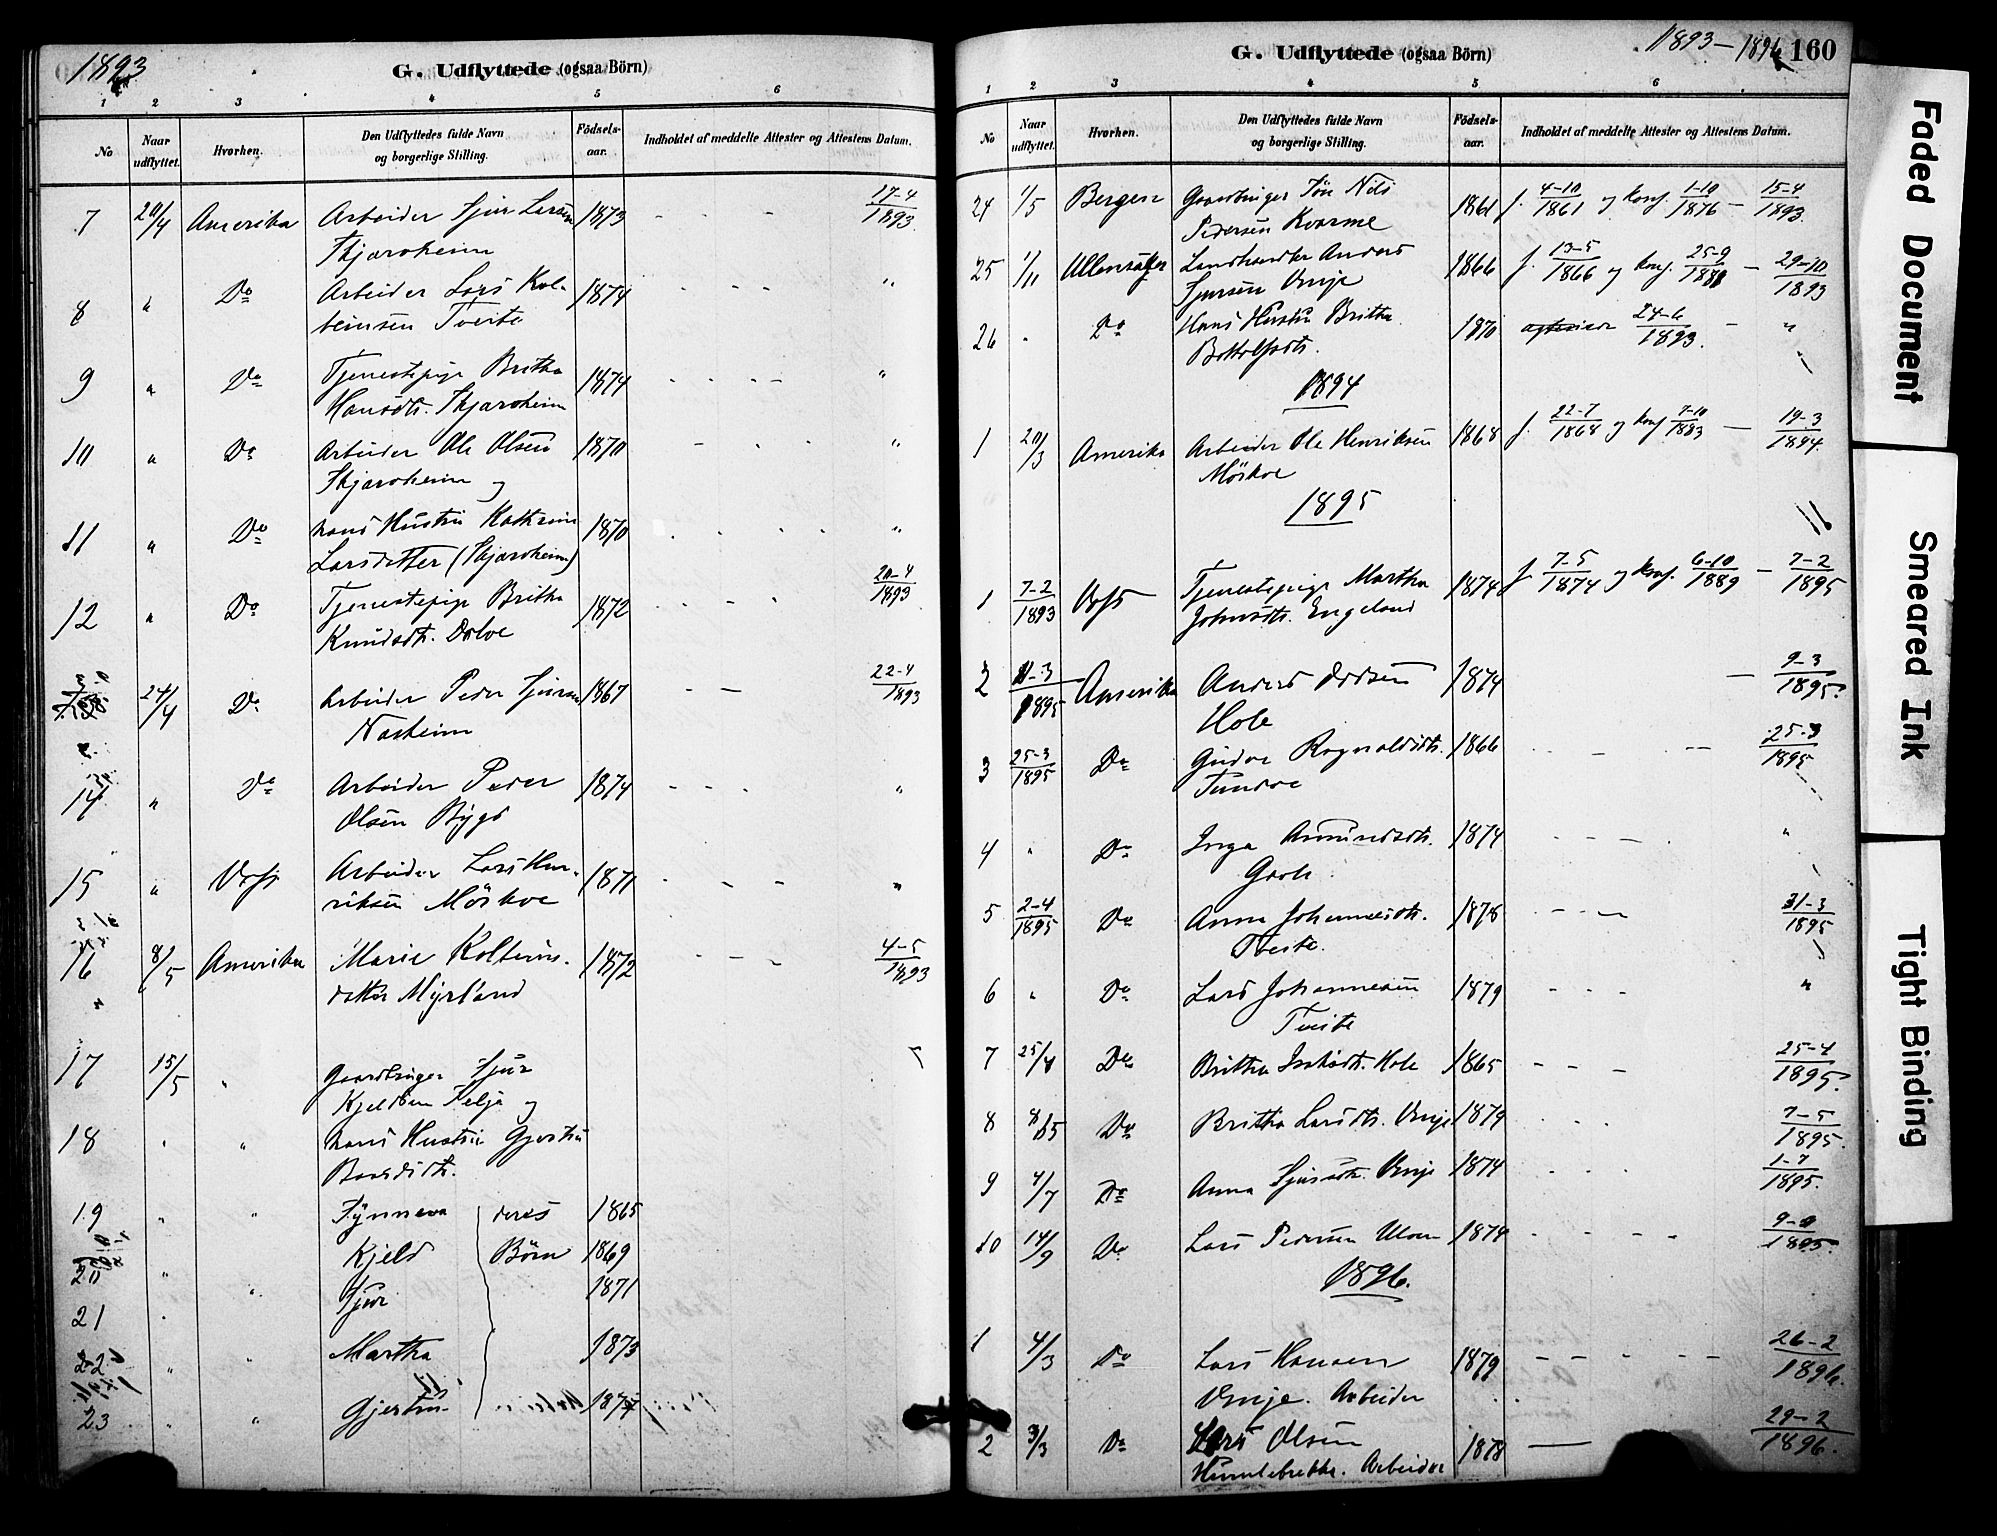 1893
G. Udflyttede (ogsaa Börn)
1 2 3 4 5 6
No Naar udflyttet. Hvorhen. Den Udflyttedes fulde Navn og borgerlige Stilling. Födsels-aar. Indholdet af meddelte Attester og Attestens Datum.
7 20/4 Amerika Arbeider Sjur Larsen 1873 - - - 17-4/1893
Skjærvheim
8 " Do Arbeider Lars Kol- 1874 - - - "
beinsen Tveite
9 " Do Tjenestepige Britha 1874 - - - - "
Hansdtr. Skjærvheim
10 " Do Arbeider Ole Olsen 1870 - - - "
Skjærvheim og
11 " Do hans Hustru Kathrine 1870 "
Larsdatter (Skjærvheim)
12 " Do Tjenestepige Britha 1872 - - - 20-4/1893
Knudsdtr. Dolve
24/4 Do Arbeider Peder Sjursen 1867 - - 22-4/1893
Nasheim
14 " Do Arbeider Peder 1874 - - - "
Olsen Bygd
15 " Voss Arbeider Lars Hen- 1871 - - - "
riksen Mörkve
16 8/5 Amerika Marie Kolbeins- 1872 - - - 4-5/1893
datter Myrland
17 15/5 " Gaardbruger Sjur
Kjeldsen Selja og
18 " " hans Hustru Gjertru
Baardsdtr.
19 " " Synneva deres 1865
20 " " Kjeld Börn 1869
21 " Sjur 1871
22 " " Martha 1873
23 " " Gjertru
1893-1896 160
G. Udflyttede (ogsaa Börn)
1 2 3 4 5 6
No Naar udflyttet. Hvorhen. Den Udflyttedes fulde Navn og borgerlige Stilling. Födsels-aar. Indholdet af meddelte Attester og Attestens Datum.
24 1/5 Bergen Gaardbruger Søn Nils 1861 f. 4-10/1861 og konf. 1-10/1876 - 15-4/1893.
Pedersen Kvarme
25 1/11 Landhandler Anders 1866 f. 13-5/1866 og konf. 25-9/1881 - 29-10/1893
Sjursen Vinje
26 " Do Hans Hustru Britha 1870 24-6/1893. - "
Bottolfsdtr.
1894
1 20/3 Amerika Arbeider Ole Henriksen 1868 f. 22-7/1868 og konf. 7-10/1883 - 19-3/1894.
Mörkve
1895
1 7-2/1893 Voss Tjenestepige Martha 1874 f. 7-5/1874 og konf. 6-10/1889 - 7-2/1895
Johnsdtr. Engeland
2 11-3/1895 Amerika Anders Oddsen 1874 - 9-3/1895.
Hole
3 25-3/1895 Do Gudve Rognaldsdtr. 1866 - - - 25-3/1895
Tundve
4 " Do Inga Amundsdtr. 1874 - - - "
Grove
5 2-4/1895 Do Anna Johannesdtr. 1878 - - - 31-3/1895
Tveite.
6 " Do Lars Johannesen 1879 - - - "
Tveite
7 25/4 Do Britha Hole 1865 - - - 25-4/1895.
8 Do Britha Larsdtr. Vinje 1879 - - - 7-5/1895.
9 4/7 Do Anna Sjursdtr. Vinje 1874 1-7/1895.
10 14/9 Do Lars Pedersen 1874 - - - - 9-9/1895.
1896.
1 4/3 Do Lars Hansen 1879 - - - - - 26-2/1896
Vinje. Arbeider
2 3/3 Do Lars Olsen 1878 - 29-2/1896.
Humlebrekke. Arbeider
Faded Document
Smeared Ink
Tight Binding